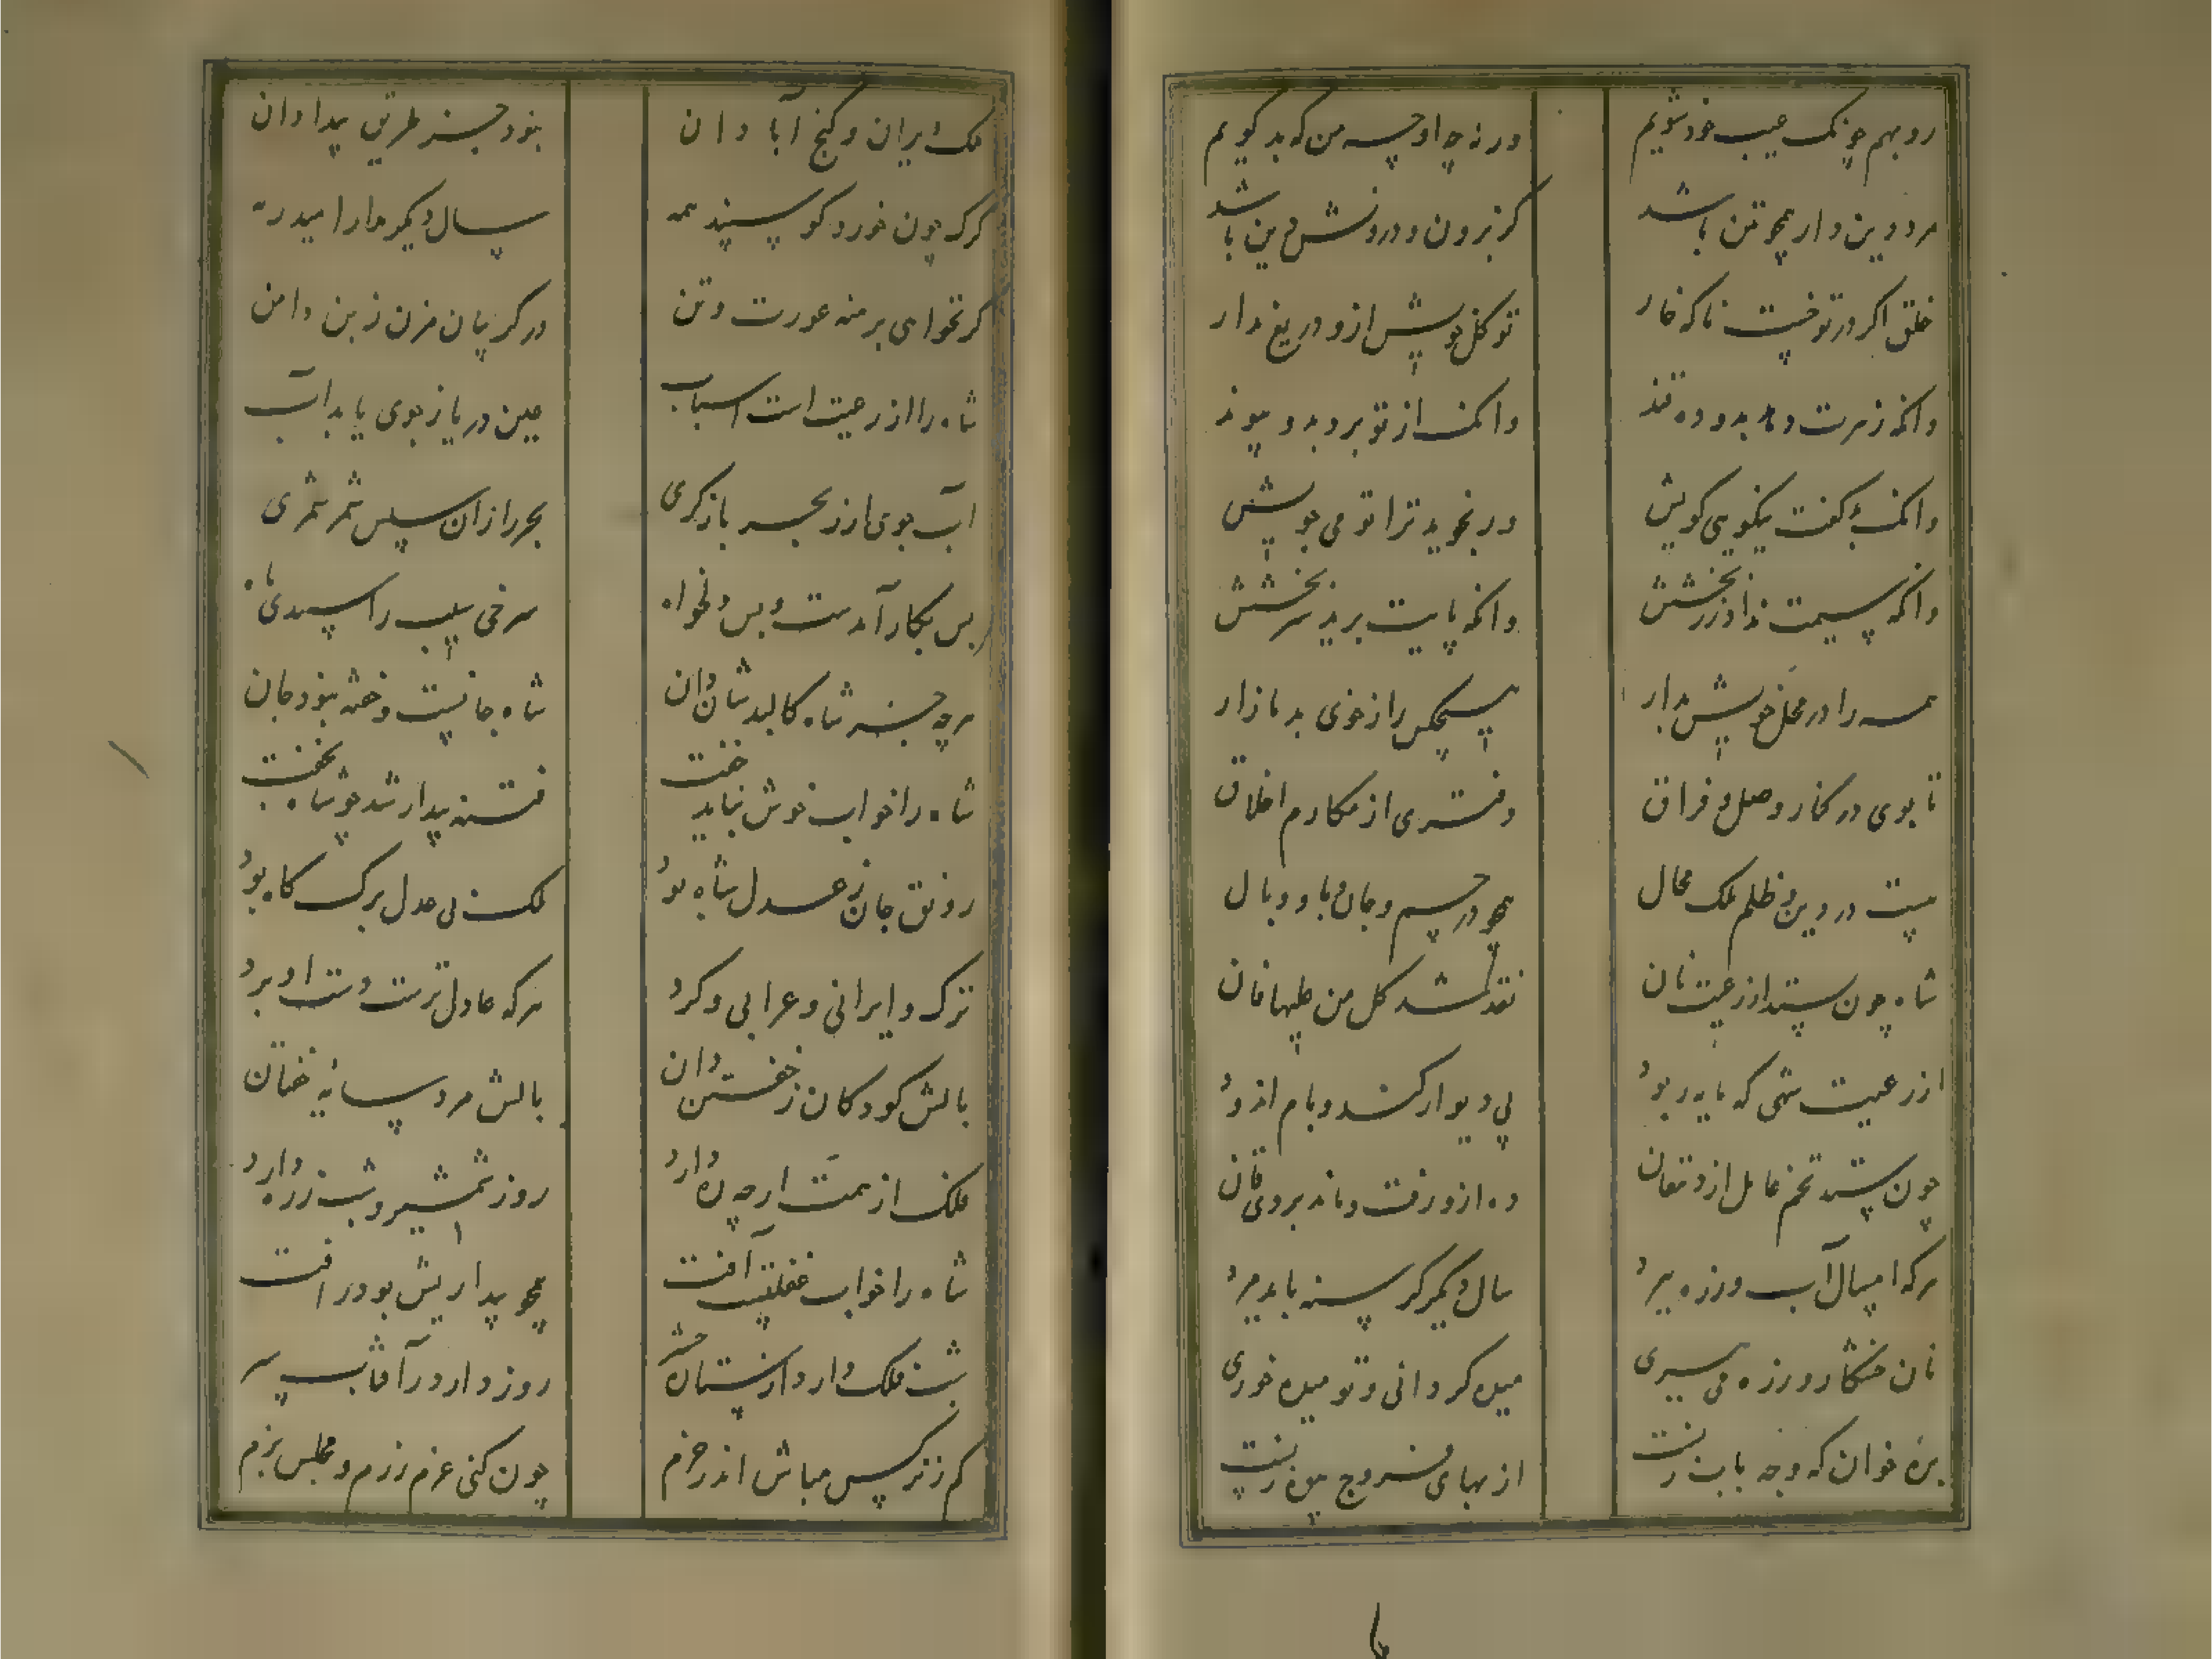 رو بهم چونک عیب خود شویم ورنه چه او چه من که بد گویم
مرد دین دار همچو تن باشد کز برون و درونش دین باشد
خلق اگر در تو خست ناگه خار تو گل خویش ازو دریغ مدار
وانکه زهرت دهد بدو ده قند وانک از تو برد بدو پیوند
وانک بد گفت نیکویی گویش ور نجوید ترا تو می جویش
وانکه سیمت نداد زر بخشش وانکه پایت برید سر بخشش
همه را در محل خویش بدار هیچکس را ز خوی بد مازار
تا بوی در کنار وصل و فراق دفتری از مکارم اخلاق
هست در دین و ظلم ملک محال همچو در جسم و جان وبا و وبال
شاه چون ستد از رعیت نان نقد شد کل من علیها فان
از رعیت شهی که مایه ربود پی دیوار کند و بام اندود
چون ستد تخم عامل از دهقان ده ازو رفت و ماند بروی قان
هرکه امسال آب ورزه ببرد سال دیگر گرسنه باید مرد
نان خشکار ورزه می سپری میده گردانی و تو میده خوری
بره خوان که وجه بابت رشت از بهای فروج بیوه زنست
ملک ایران و گنج آبادان نبود جز طریق بیدادان
گرگ چون خورد گوسپند همه سال دیگر ورا مدرمه
گر نخواهی برهنه عورت و تن در گریبان مزن ز بن دامن
شاه را از رعیت است اسباب عین دریا ز جوی یابد آب
آب جوی ار ز بحر بازگری بحر را زان سپس شمر شمری
بس بکار آمدست و بس دلخواه سرخی سیب را سپیدی ماه
هرچه جز شاه کالبد شان دان شاه جانست و خفته نبود جان
شاه را خواب خوش نباید خفت فتنه بیدار شد چو شاه بخفت
رونق جان ز عدل شاه بود ملک بی عدل برگ کاه بود
ترک و ایرانی و عرابی و کرد هرکه عادل ترست دست او برد
بالش کودکان ز خفتن دان بالش مرد سایه ختان
ملک از همت ارچه ره دارد روز شمشیر و شب زره دارد
شاه را خواب غفلت آفت همچو بیداریش بود رافت
شب ملک دارد ار شبستان خوش روز دارد در آفتاب سپر
کم ز نرگس مباش اندر حزم چون کنی عزم رزم و مجلس بزم